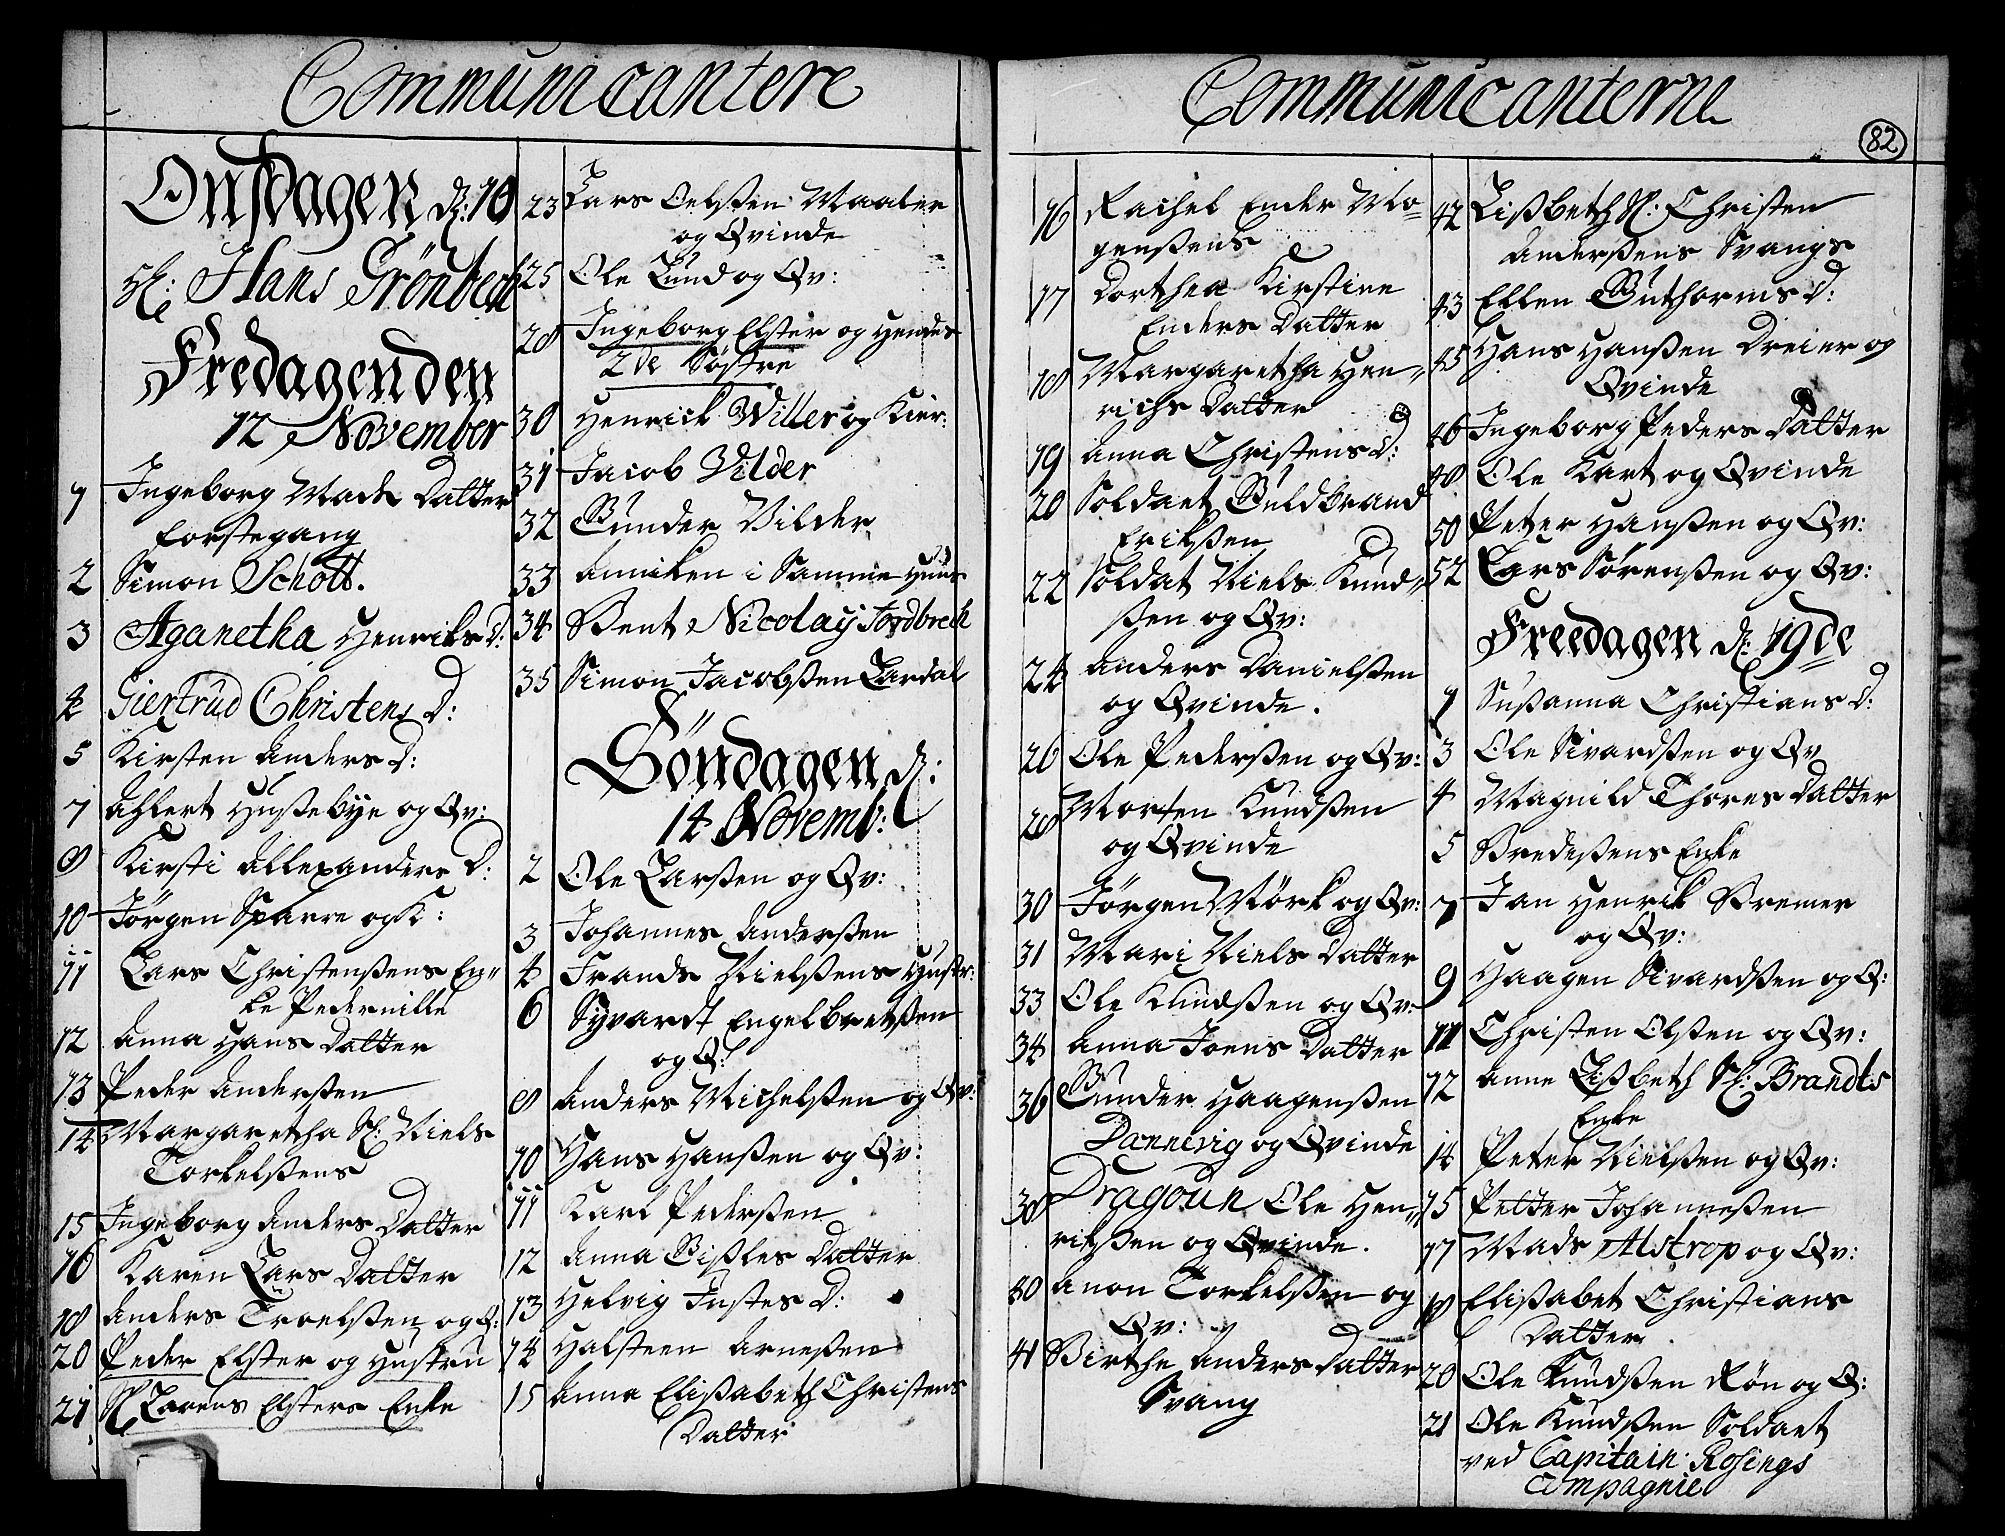 Communicantere
Onsdagen d: 10
Sl: Hans Grönbech
Fredagen den
12 November
1 Ingeborg Mads Datter
forstegang
2 Simon Schott.
3 Aganetha Henriks D:
4 Giertrud Christens D:
5 Kirsten Anders D:
7 Ahlert Hussebÿe og Qv:
9 Kirsti Allexanders D:
10 Jörgen Sparre og K:
11 Lars Christenssens En„
ke Pedernille
12 Anna Hans Datter
13 Peder Anderssen
14 Margaretha Sl: Niels
Torkelssens
15 Ingeborg Anders Datter
16 Karen Lars Datter
18 Anders Troelssen og Q:
20 Peder Elster og Hustru
21 Sl Lorens Elsters Enke
23 Lars Oelssen Maaler
og Qvinde
25 Ole Lund og Qv:
28 Ingeborg Elster og Hendes
2de Søstre
30 Henrick Willer og Kier:
31 Jacob Vilder
32 Gunder Vilder
33 Anniken i Samme Huus
34 Bent Nicolaÿ Jordbrech
35 Simon Jacobssen Lardal
Söndagen d:
14 Novemb:
2 Ole Larssen og Qv:
3 Johannes Anderssen
4 Frands Nielssens Hustr:
6 Syvardt Engelbretssen
og Q:
8 Anders Michelssen og Qv:
10 Hans Hanssen og Qv:
11 Karl Pederssen
12 Anna Gissles Datter
13 Helvig Justes D:
14 Halsteen Arnessen
15 Anna Elissabeth Christens
Datter
Communicanterne
82
16 Rachel Ender Mo=
genssens
17 Dorthea Kirstine
Enders Datter
18 Margaretha Hen„
richs Datter
19 Anna Christens D:
20 Soldaet Guldbrand
Erikssen
22 Soldat Niels Knud„
ssen og Qv:
24 Anders Danielssen
og Qvinde.
26 Ole Pederssen og Qv:
28 Morten Knudssen
og Qvinde
30 Jörgen Mörk og Qv:
31 Mari Niels Datter
33 Ole Knudssen og Qv:
34 Anna Joens Datter
36 Gunder Haagenssen
Dannevig og Qvinde
38 Dragoun Ole Hen„
rikssen og Qvinde.
40 Anon Torkelssen og
Qv:
41 Birthe Anders Datter
Svang
42 Lissbeth Sl: Christen
Anderssens Svangs
43 Ellen Guthorms D:
45 Hans Hanssen Dreier og
Qvinde
46 Ingeborg Peders Datter
48 Ole Kart og Qvinde
50 Peter Hanssen og Qv:
52 Lars Sörenssen og Qv:
Freedagen d: 19de
1 Sussanna Christians D:
3 Ole Sivardssen og Qv
4 Magnild Thores Datter
5 Bredessens Enke
7 Jan Henrik Bremer
og Qv:
9 Haagen Sivardssen og Q:
11 Christen Olssen og Qv:
12 Anne Lissbeth Sl: Brandts
Enke
14 Peter Nielssen og Qv:
15 Petter Johannessen
17 Mads Alstrop og Qv:
18 Elissabet Christians
Datter
20 Ole Knudssen Røn og Q:
21 Ole Knudssen Soldaet
ved Capitain Rosings
Compagnie